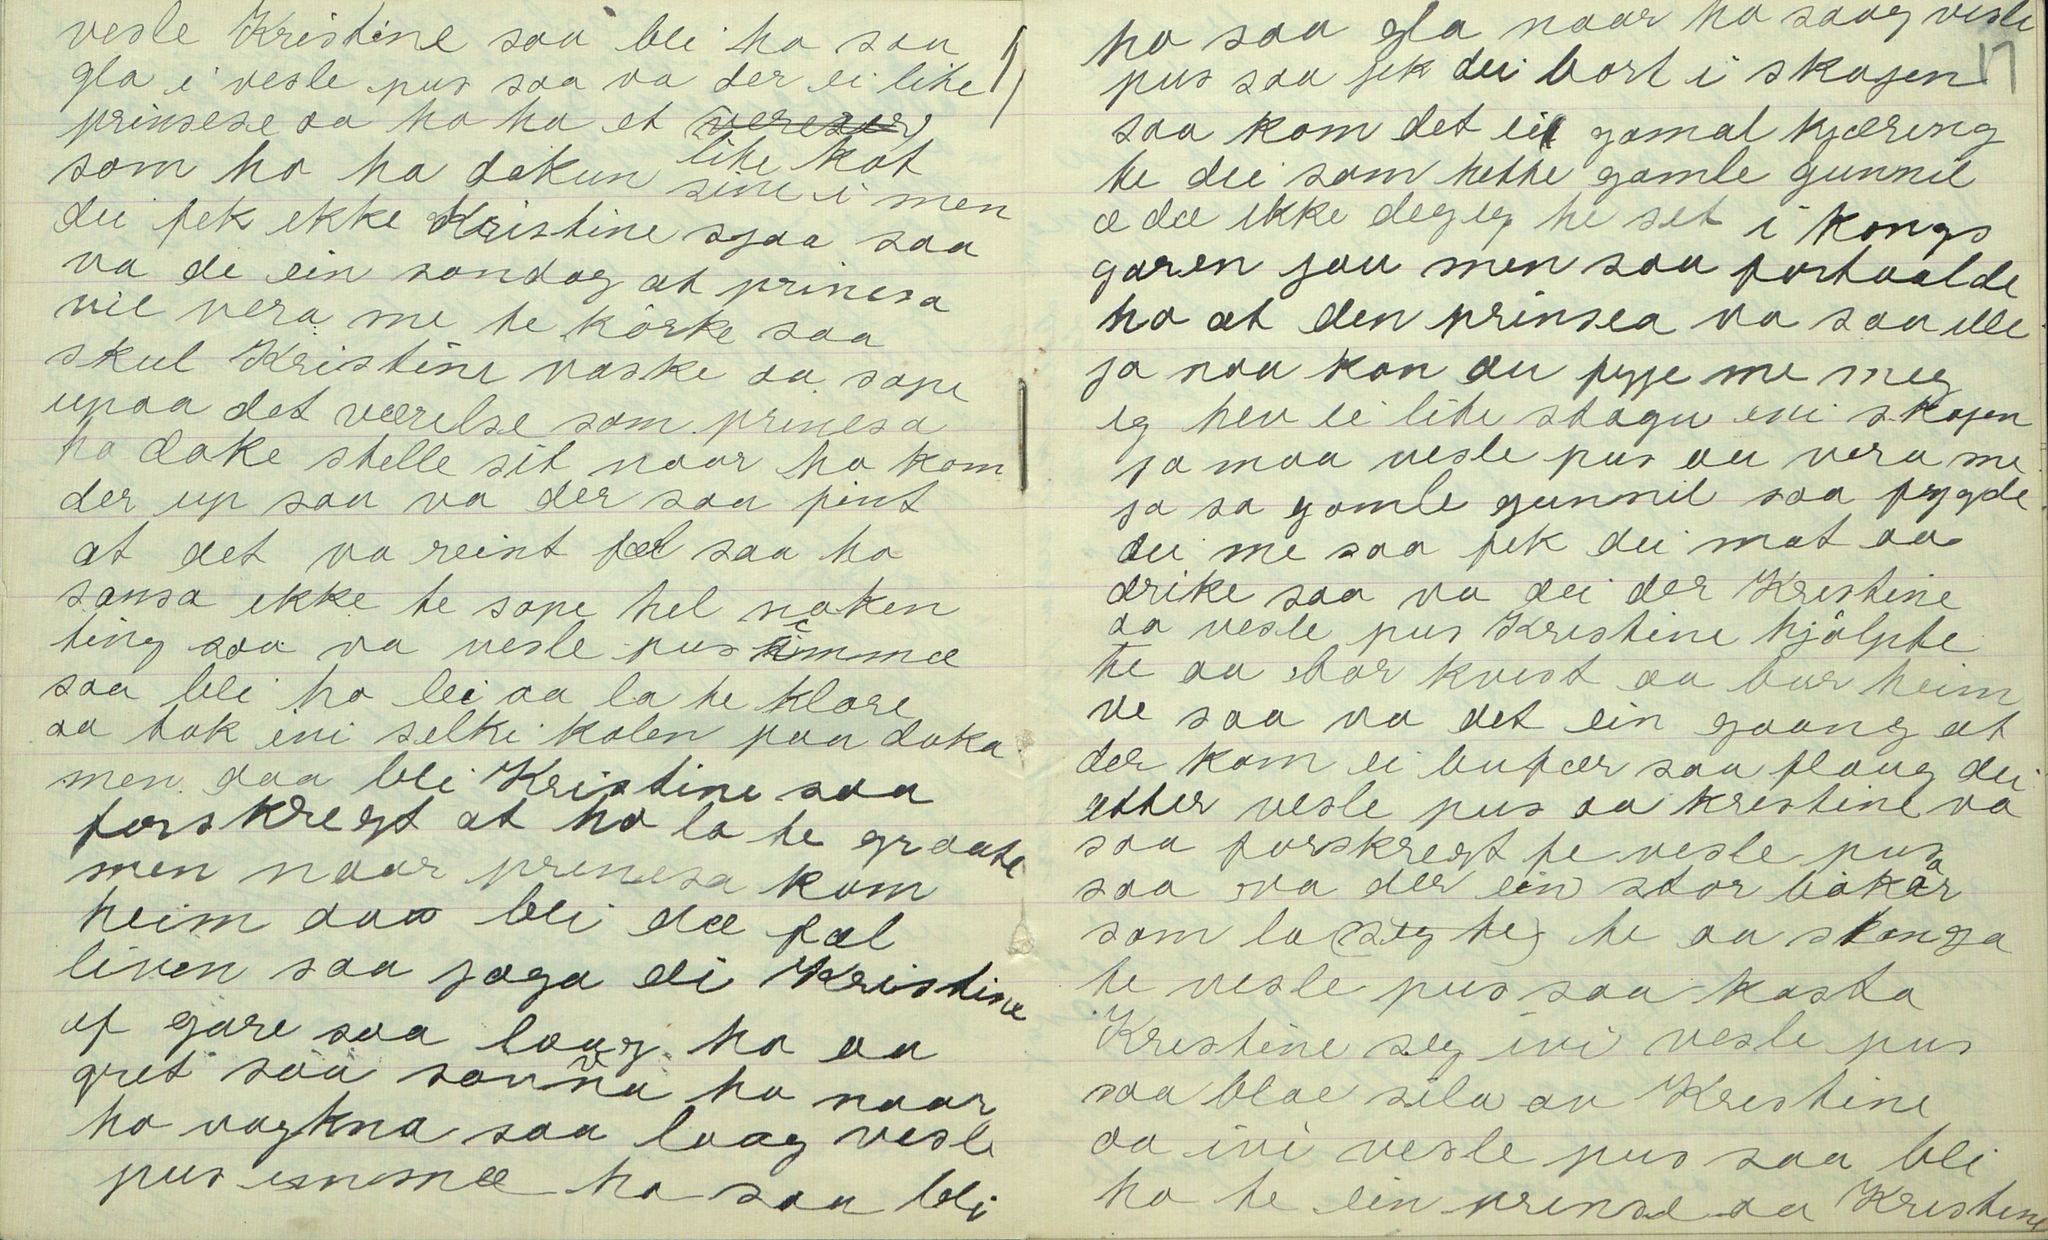 vesle Kristine saa blei ho saa
gla i vesle pus saa va der ei lite
prinsese aa ho ha et værelser
lite kot
som ho ha dokun sine i men
dei fek ikke Kristine sjaa saa
va de ein sondag at prinesa
vil vera me te kørke saa
skul Kristine vaske aa sope
upaa det værelse som prinesa
ha doke stelle sit naar ho kom
der up saa va der saa pint
at det va reint fæl saa ho
sansa ikke te sope hel noken
ting saa va vesle pus immæ
saa blei ho lei aa la te klore
aa tok ini selki kolen paa doka
men daa blei Kristine saa
forskregt at ho la te graate
men naar prinesa kom
heim daa blei dæ fæl
liven saa jaga dei Kristine
af gare saa laag ho aa
gret saa somna ho naar
ho vagkna saa laag vesle
pus immæ ho saa blei
17
ho saa gla naar ho saag vesle
pus saa fek dei bort i skogen
saa kom det ei gamal kjæring
te dei som hette gamle gunnil
æ dæ ikke deg eg he set i kongs
garen jau men saa fortaalde
ho at den prinsea va saa ille
ja naa kan du fyje me meg
eg hev ei lite stagu ini skogen
ja maa vesle pus au vera me
ja sa gamle gunnil saa fygde
dei me saa fek dei mat aa
drike saa va dei der Kristine
aa vesle pus Kristine hjølpte
te aa bar kvist aa bar heim
ve saa va det ein gaang at
der kom ei bufær saa flaug dei
etter vesle pus aa kristine va
saa forskregt fe vesle pus
saa va der ein stor bukar
som la seg te te aa stanga
te vesle pus saa kasta
Kristine seg ivi vesle pus
saa blæ sila av Kristine
aa ivi vesle pus saa blei
ho te ein prinse aa Kristine